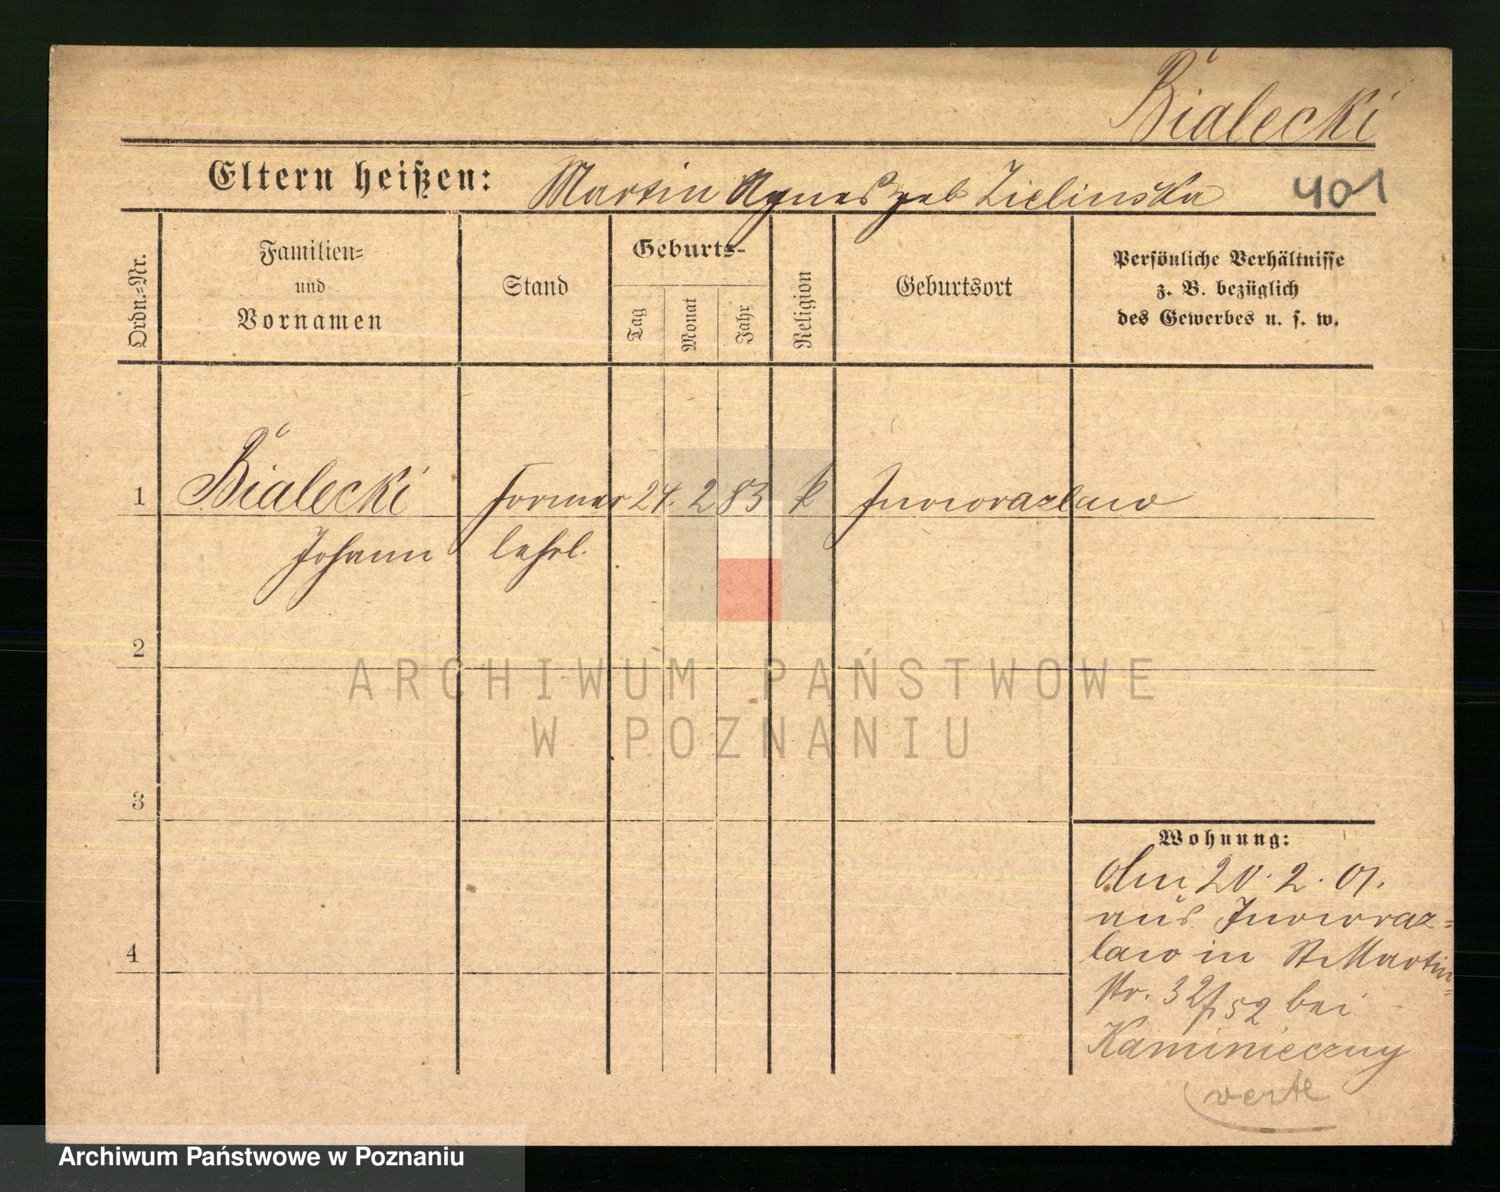 Bialecki
Eltern heißen: Martin Agnes geb Zielinska 401
Ordn.-Nr.
Familien-
und
Vornamen
Stand
Geburts-
Tag
Monat
Jahr
Religion
Geburtsort
Persönliche Verhältnisse
z. B. bezüglich
des Gewerbes u. s. w.
1 Bialecki Former 24. 2 83 k Inowrazlaw
Johann lehrl.
2
3
4
Wohnung:
Am 20. 2. 01.
aus Inowraz-
law in St Martin-
str. 32/52 bei
Kaminieczny
verte
ARCHIWUM PAŃSTWOWE
W POZNANIU
Archiwum Państwowe w Poznaniu